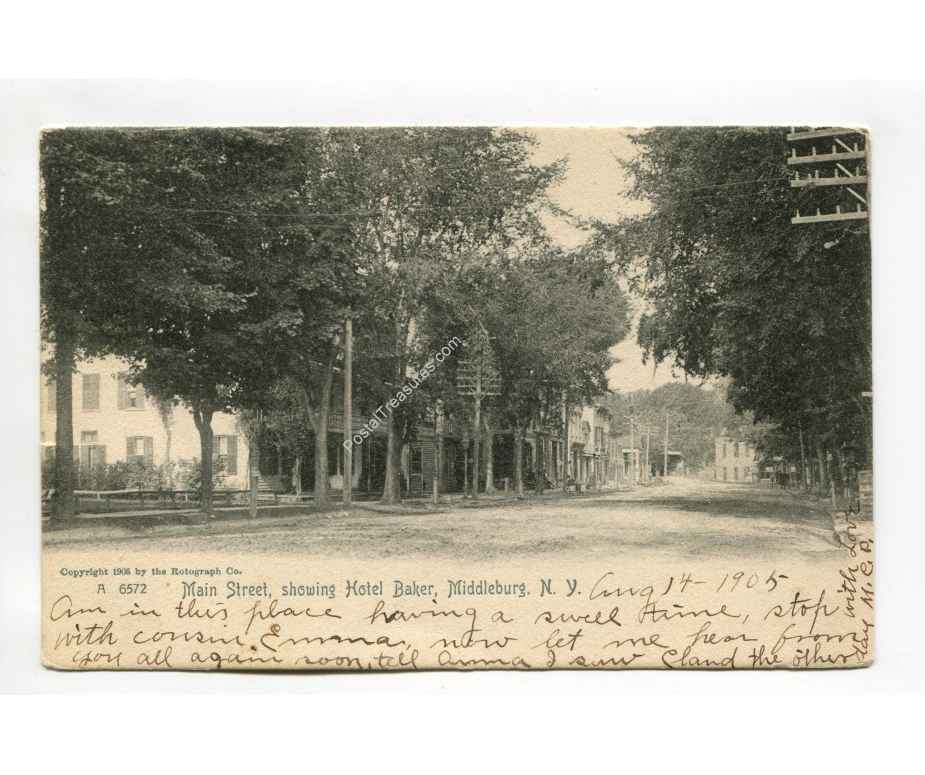 PostalTreasures.com
Copyright 1905 by the Rotograph Co.
A 6572 Main Street, showing Hotel Baker, Middleburg, N. Y.
Aug 14 - 1905
Am in this place having a swell time, stop
with cousin Emma, now let me hear from
you all again soon, tell Anna I saw Cland the other
day with Love
M. C. P.